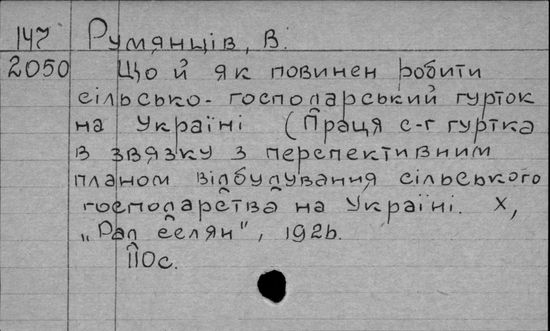 147 Румянців, В.
2050 Що й як повинен робити
сільсько-господарський гурток
на Україні (Праця с-г гуртка
в звязку з перспективним
планом відбудування сільського
господарства на Україні. Х,
„Рад селян", 1926.
110с.